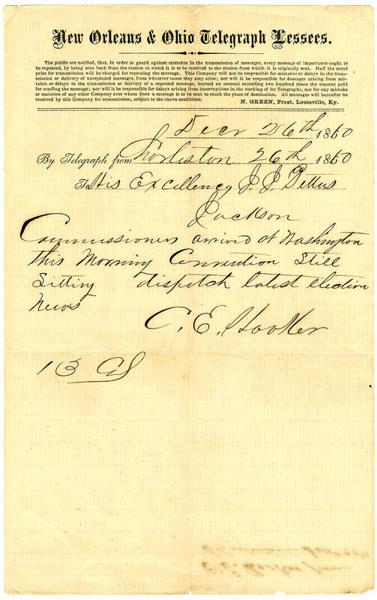 New Orleans & Ohio Telegraph Lessees.
The public are notified, that, in order to guard against mistakes in the transmission of messages, every message of importance ought to
be repeated, by being sent back from the station at which it is to be received to the station from which it is originally sent. Half the usual
price for transmission will be charged for repeating the message. This Company will not be responsible for mistakes or delays in the trans-
mission or delivery of unrepeated messages, from whatever cause they may arise; nor will it be responsible for damages arising from mis-
takes or delays in the transmission or delivery of a repeated message, beyond an amount exceeding five hundred times the amount paid
for sending the message; nor will it be responsible for delays arising from interruptions in the working of its Telegraphs, nor for any mistake
or omission of any other Company over whose lines a message is to be sent to reach the place of destination. All messages will hereafter be
received by this Company for transmission, subject to the above conditions.
N. GREEN, Prest. Louisville, Ky.
Decr 26th 1860
By Telegraph from Charleston 26th 1860
To His Excellency J J Pettus
Jackson
Commissioners arrived at Washington
this Morning Convention Still
Sitting dispatch latest election
news
C. E. Hooker
13